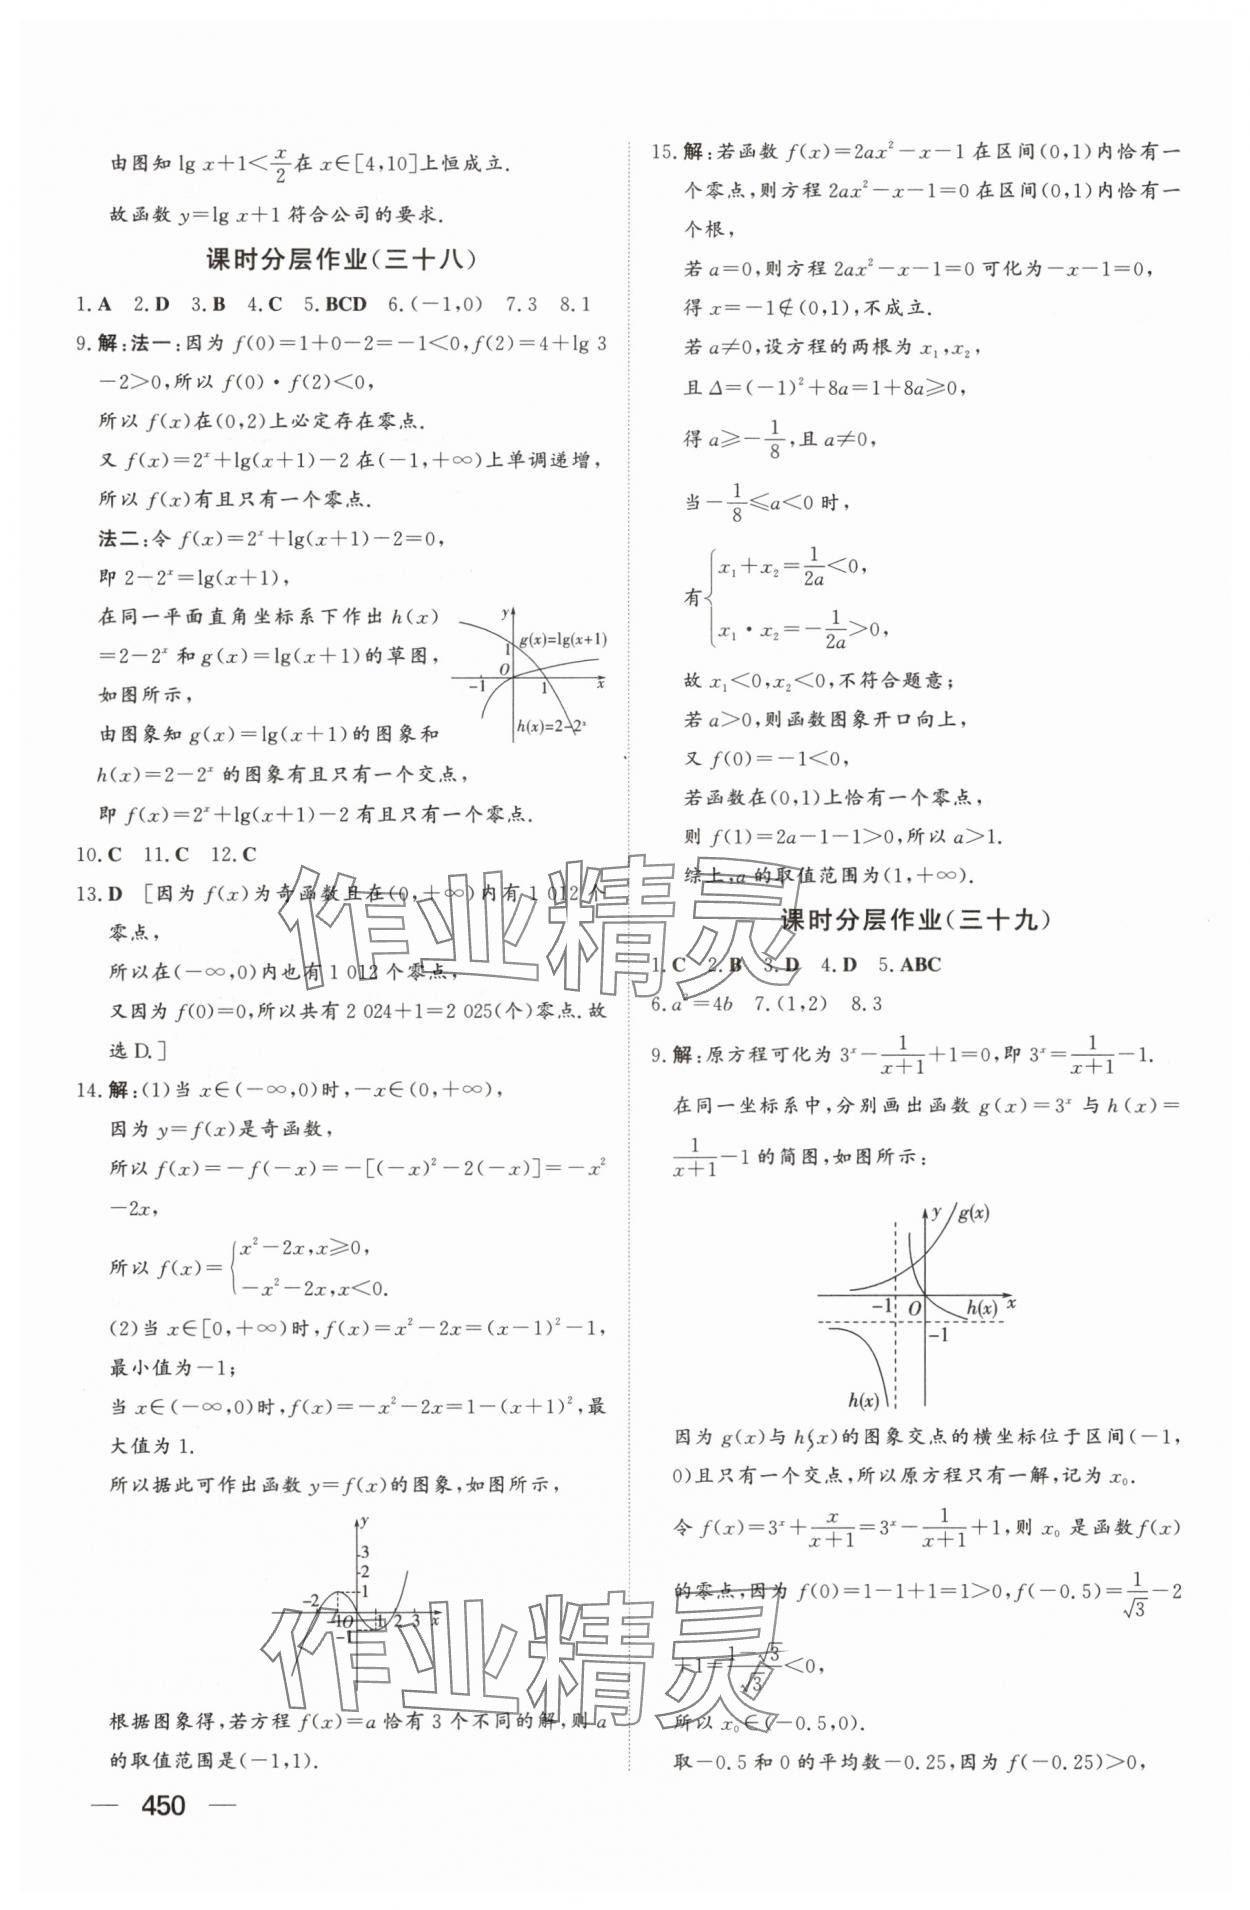 由图知 lg x+1<x/2 在 x∈[4,10]上恒成立.
故函数 y=lg x+1 符合公司的要求.
课时分层作业(三十八)
1. A 2. D 3. B 4. C 5. BCD 6. (-1,0) 7. 3 8. 1
9. 解:法一:因为 f(0)=1+0-2=-1<0,f(2)=4+lg 3
-2>0,所以 f(0)·f(2)<0,
所以 f(x)在(0,2)上必定存在零点.
又 f(x)=2ˣ+lg(x+1)-2 在(-1,+∞)上单调递增,
所以 f(x)有且只有一个零点.
法二:令 f(x)=2ˣ+lg(x+1)-2=0,
即 2-2ˣ=lg(x+1),
在同一平面直角坐标系下作出 h(x)
=2-2ˣ 和 g(x)=lg(x+1)的草图,
如图所示,
由图象知 g(x)=lg(x+1)的图象和
h(x)=2-2ˣ 的图象有且只有一个交点,
即 f(x)=2ˣ+lg(x+1)-2 有且只有一个零点.
y
g(x)=lg(x+1)
1
O
-1 1 x
h(x)=2-2ˣ
10. C 11. C 12. C
13. D [因为 f(x)为奇函数且在(0,+∞)内有 1 012 个
零点,
所以在(-∞,0)内也有 1 012 个零点,
又因为 f(0)=0,所以共有 2 024+1=2 025(个)零点.故
选 D.]
14. 解:(1)当 x∈(-∞,0)时,-x∈(0,+∞),
因为 y=f(x)是奇函数,
所以 f(x)=-f(-x)=-[(-x)²-2(-x)]=-x²
-2x,
所以 f(x)={x²-2x,x≥0,
-x²-2x,x<0.
(2)当 x∈[0,+∞)时,f(x)=x²-2x=(x-1)²-1,
最小值为-1;
当 x∈(-∞,0)时,f(x)=-x²-2x=1-(x+1)²,最
大值为 1.
所以据此可作出函数 y=f(x)的图象,如图所示,
y
3
2
1
-2 -1 O 1 2 3 x
-1
根据图象得,若方程 f(x)=a 恰有 3 个不同的解,则 a
的取值范围是(-1,1).
450
15. 解:若函数 f(x)=2ax²-x-1 在区间(0,1)内恰有一
个零点,则方程 2ax²-x-1=0 在区间(0,1)内恰有一
个根,
若 a=0,则方程 2ax²-x-1=0 可化为-x-1=0,
得 x=-1∉(0,1),不成立.
若 a≠0,设方程的两根为 x₁,x₂,
且 Δ=(-1)²+8a=1+8a≥0,
得 a≥-1/8,且 a≠0,
当-1/8≤a<0 时,
有{x₁+x₂=1/2a<0,
x₁·x₂=-1/2a>0,
故 x₁<0,x₂<0,不符合题意;
若 a>0,则函数图象开口向上,
又 f(0)=-1<0,
若函数在(0,1)上恰有一个零点,
则 f(1)=2a-1-1>0,所以 a>1.
综上,a 的取值范围为(1,+∞).
课时分层作业(三十九)
1. C 2. B 3. D 4. D 5. ABC
6. a²=4b 7. (1,2) 8. 3
9. 解:原方程可化为 3ˣ-1/(x+1)+1=0,即 3ˣ=1/(x+1)-1.
在同一坐标系中,分别画出函数 g(x)=3ˣ 与 h(x)=
1/(x+1)-1 的简图,如图所示:
y g(x)
-1 O h(x) x
-1
h(x)
因为 g(x)与 h(x)的图象交点的横坐标位于区间(-1,
0)且只有一个交点,所以原方程只有一解,记为 x₀.
令 f(x)=3ˣ+x/(x+1)=3ˣ-1/(x+1)+1,则 x₀ 是函数 f(x)
的零点,因为 f(0)=1-1+1=1>0,f(-0.5)=1/√3-2
+1=(1-√3)/√3<0,
所以 x₀∈(-0.5,0).
取-0.5 和 0 的平均数-0.25,因为 f(-0.25)>0,
作业精灵
作业精灵